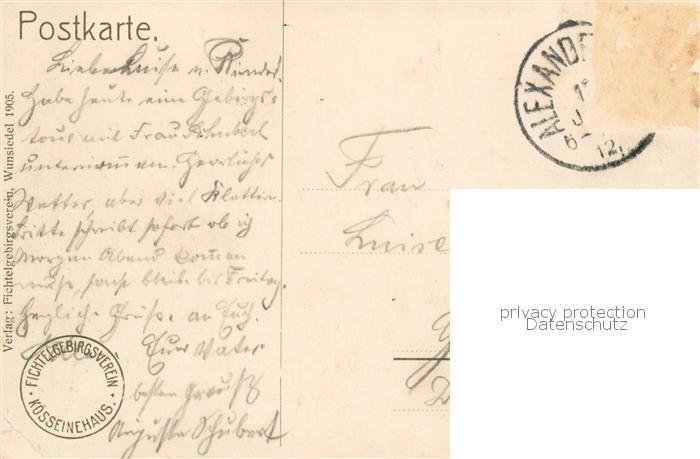 Postkarte.
Liebe Luise u. Kinder.
Habe heute eine Gebirgs=
tour mit Frau Schubert
unternommen. Herrliches
Wetter, aber viel Kletter.
Bitte schreibt sofort ob ich
Morgen Abend kommen
muß, sonst bleibe bis Freitag.
Herzliche Grüße an Euch.
Euer Vater
besten Gruß
Auguste Schubert
Frau
Luise
ALEXAND
12.
FICHTELGEBIRGSVEREIN
KÖSSEINEHAUS.
Verlag: Fichtelgebirgsverein, Wunsiedel 1905.
privacy protection
Datenschutz